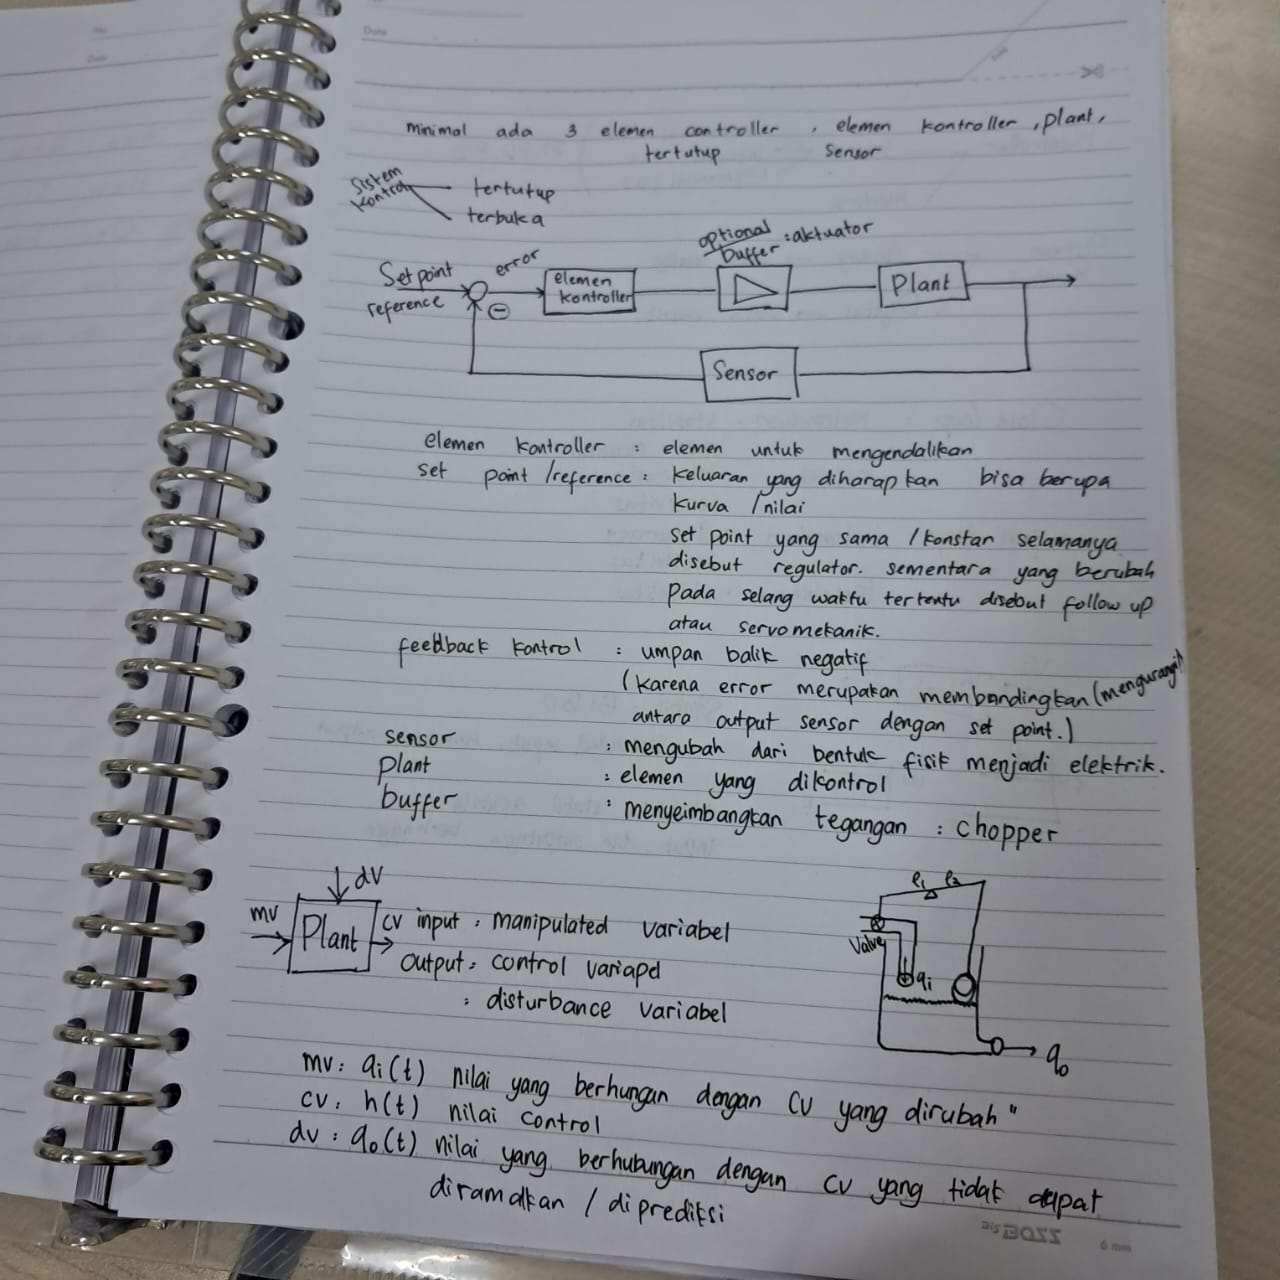 Date
minimal ada 3 elemen controller , elemen kontroller , plant,
tertutup sensor
Sistem kontrol
tertutup
terbuka
optional
buffer : aktuator
Set point
reference
error
elemen
kontroller
Plant
Sensor
elemen kontroller : elemen untuk mengendalikan
set point /reference : keluaran yang diharapkan bisa berupa
kurva /nilai
set point yang sama /konstan selamanya
disebut regulator. sementara yang berubah
pada selang waktu tertentu disebut follow up
atau servomekanik.
feedback kontrol : umpan balik negatif
(karena error merupakan membandingkan (mengurangi)
antara output sensor dengan set point.)
sensor : mengubah dari bentuk fisik menjadi elektrik.
plant : elemen yang dikontrol
buffer : menyeimbangkan tegangan : chopper
dv
mv Plant cv input : manipulated variabel
output : control variapel
: disturbance variabel
l1 l2
Valve
qi
qo
mv : qi(t) nilai yang berhungan dengan CV yang dirubah"
cv : h(t) nilai control
dv : qo(t) nilai yang berhubungan dengan cv yang tidak dapat
diramalkan / diprediksi
BOSS
6 mm